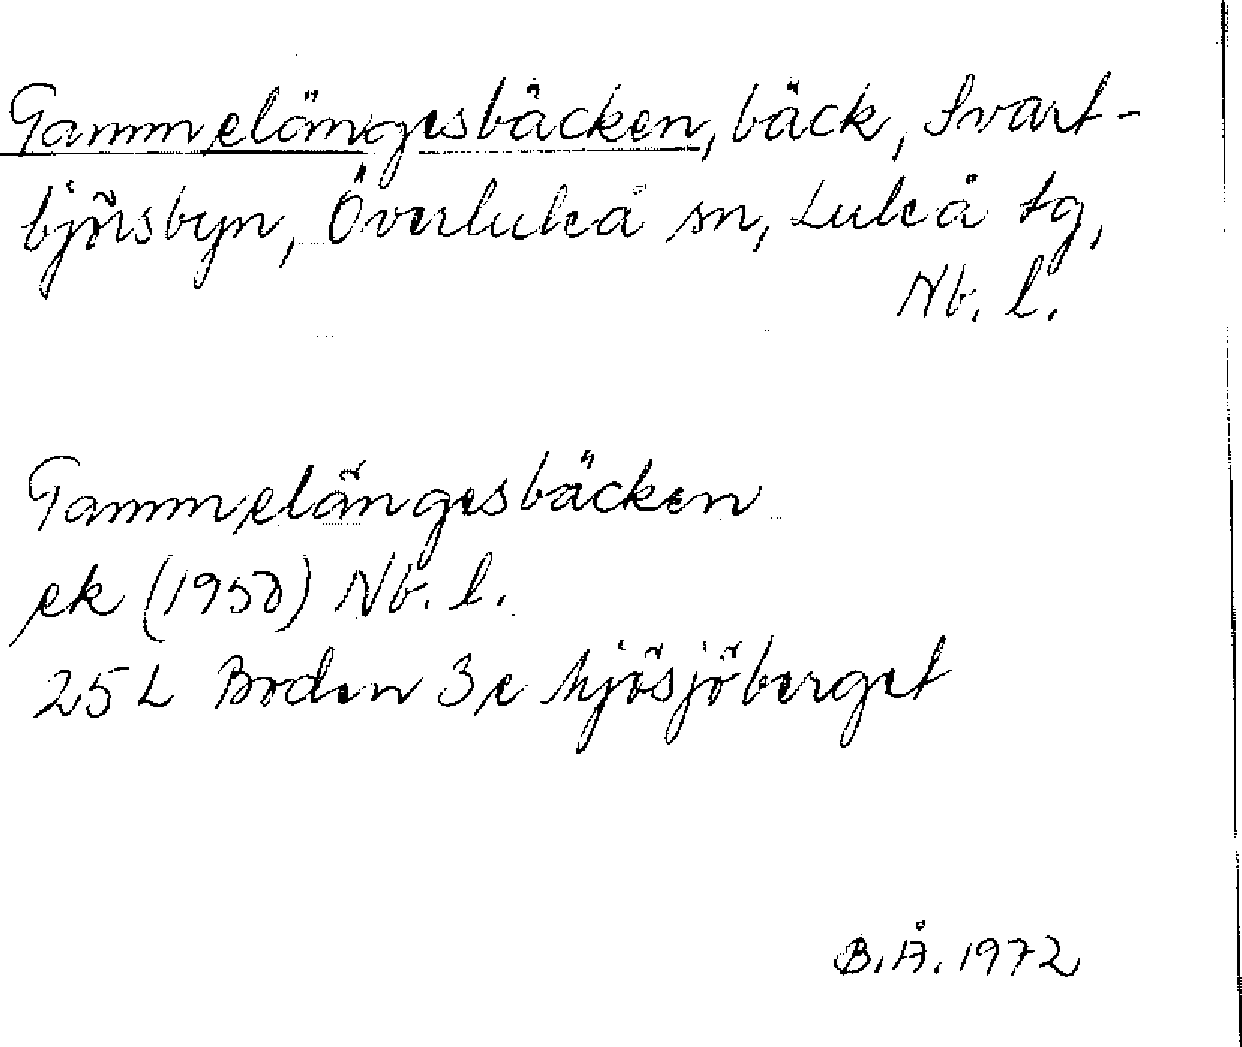 Gammelängesbäcken, bäck, Svart-
björsbyn, Överluleå sn, Luleå tg,
Nb. l.
Gammelängesbäcken
ek (1950) Nb. l.
25 L Boden 3e Mjösjöberget
B.Å. 1972